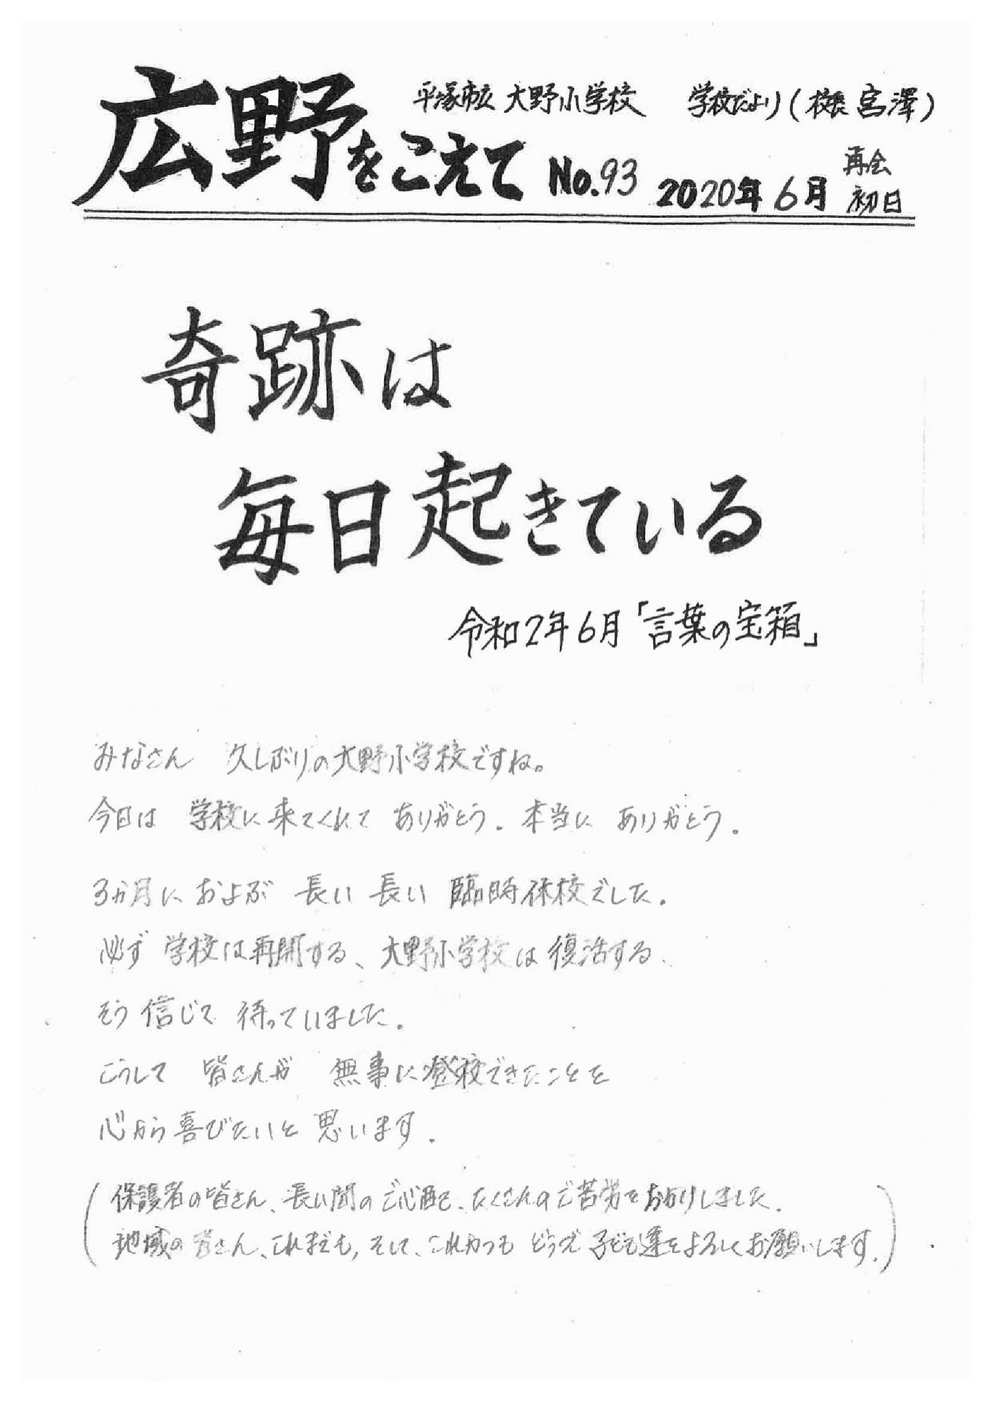 平塚市立 大野小学校 学校だより(校長 宮澤)
広野をこえて No.93 2020年6月 再会初日
奇跡は
毎日起きている
令和2年6月「言葉の宝箱」
みなさん 久しぶりの大野小学校ですね。
今日は 学校に来てくれて ありがとう。本当に ありがとう。
3か月に およぶ 長い 長い 臨時休校でした。
必ず 学校は再開する、大野小学校は復活する、
そう 信じて 待っていました。
こうして 皆さんが 無事に登校できたことを
心から喜びたいと 思います。
(保護者の皆さん、長い間のご心配と、たくさんのご苦労をおかけしました。
地域の皆さん、これまでも、そして、これからも どうぞ 子ども達をよろしくお願いします。)